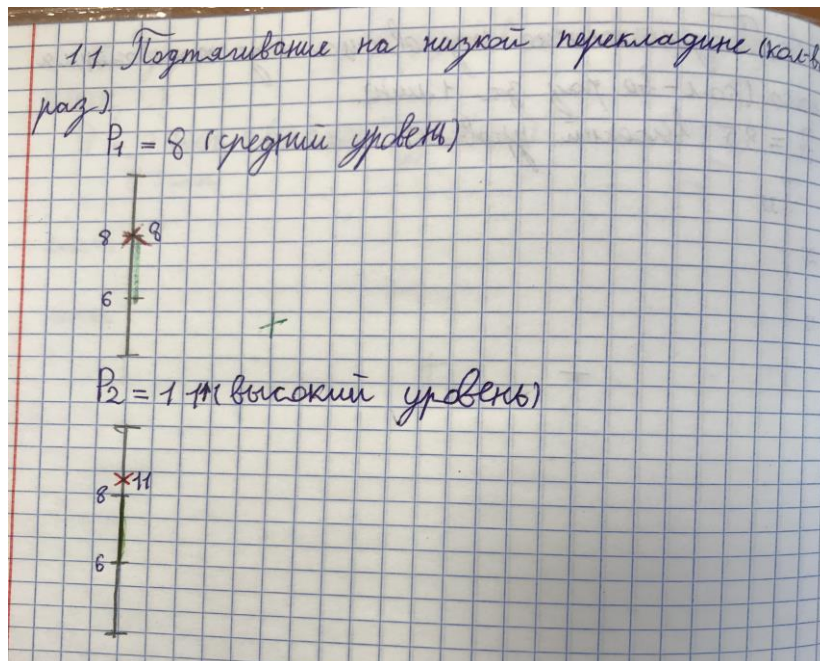 11. Подтягивание на низкой перекладине (кол-в
раз)
P₁ = 8 (средний уровень)
8 8
6
P₂ = 11 (высокий уровень)
11
8
6